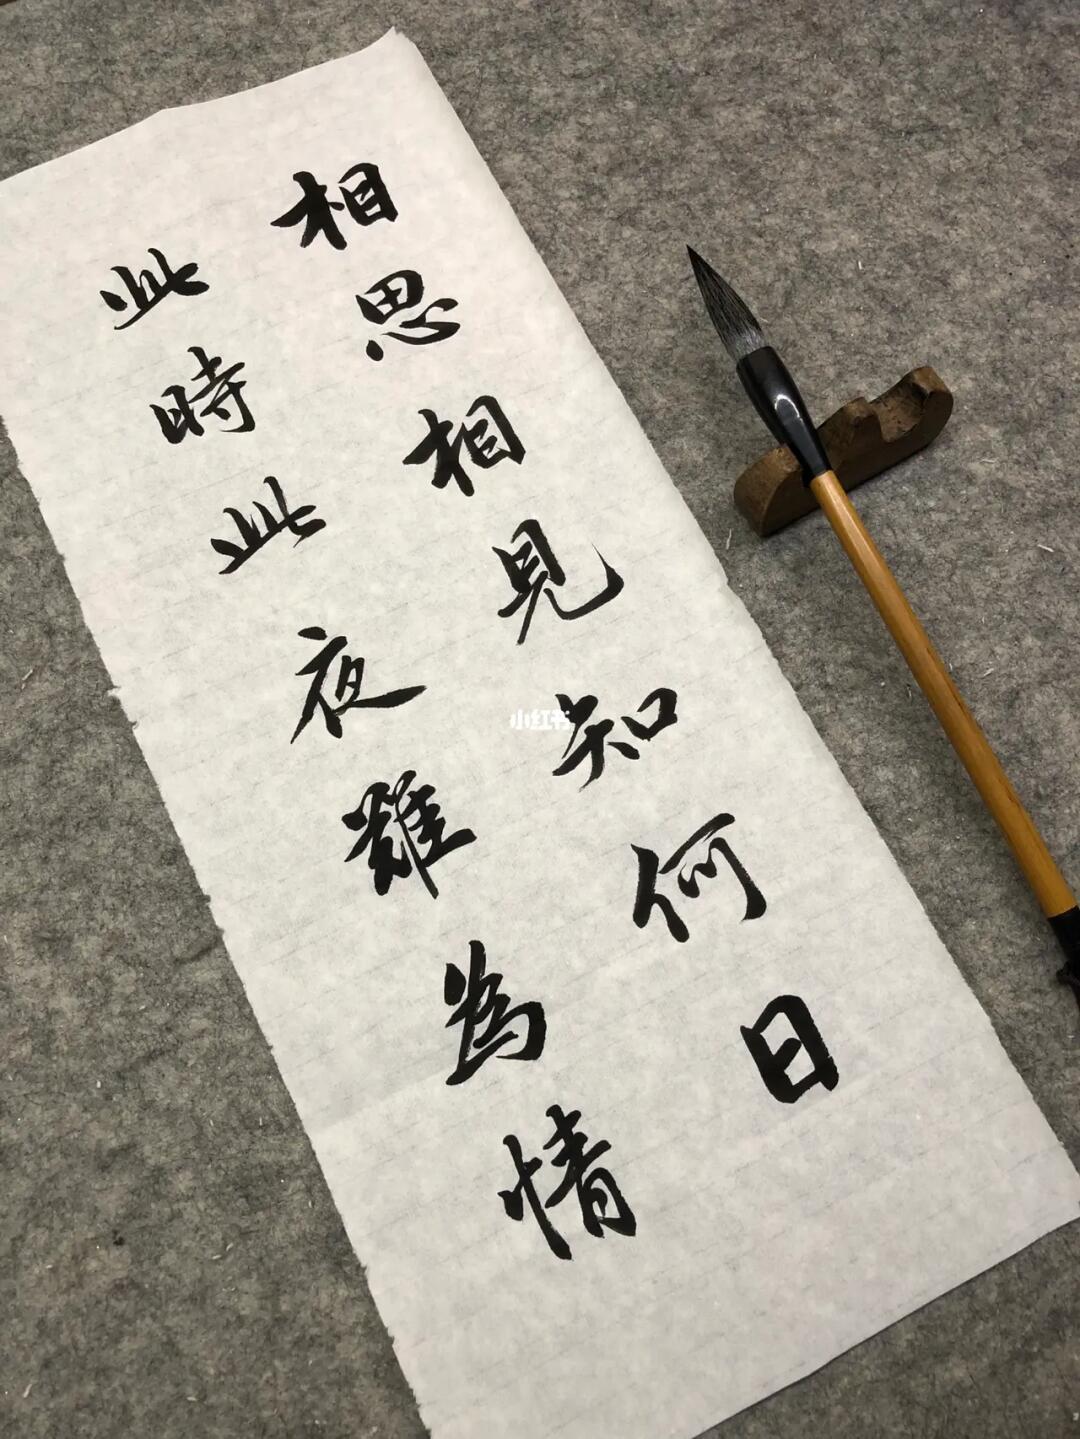 相思相見知何日
此時此夜難為情
小红书